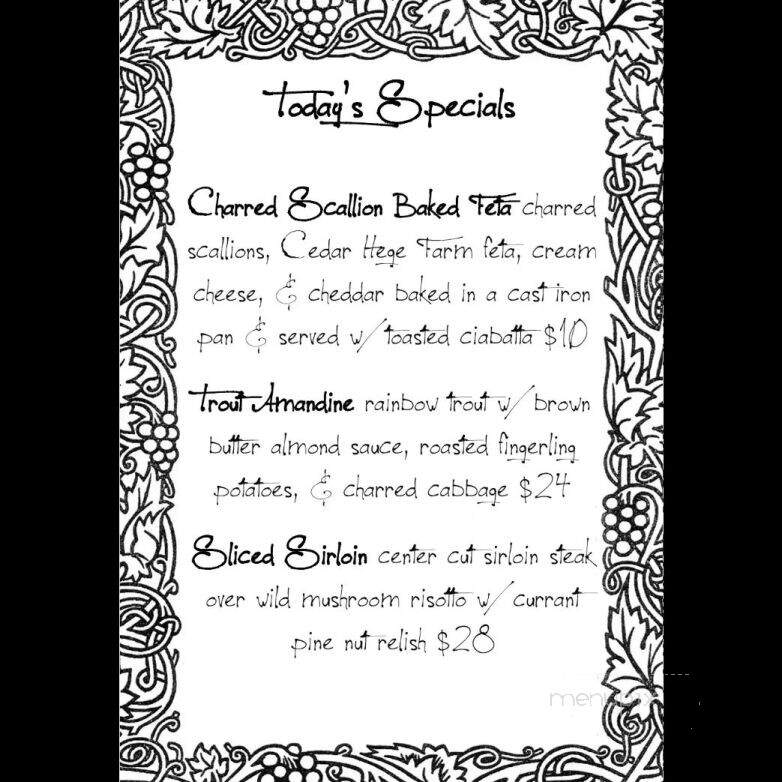 Today's Specials
Charred Scallion Baked Feta charred
scallions, Cedar Hege Farm feta, cream
cheese, & cheddar baked in a cast iron
pan & served w/ toasted ciabatta $10
Trout Amandine rainbow trout w/ brown
butter almond sauce, roasted fingerling
potatoes, & charred cabbage $24
Sliced Sirloin center cut sirloin steak
over wild mushroom risotto w/ currant
pine nut relish $28